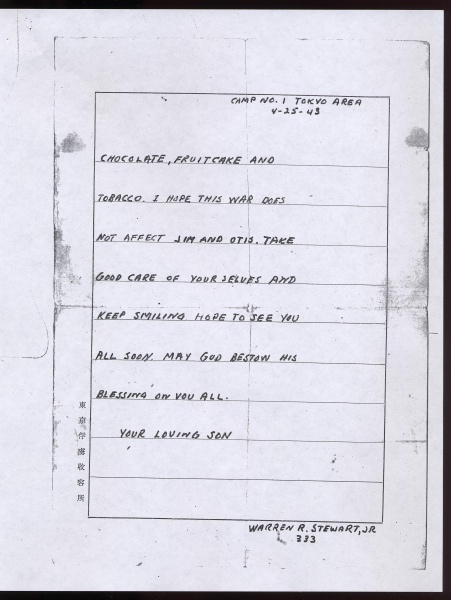 CAMP NO. 1 TOKYO AREA
4-25-43
CHOCOLATE, FRUITCAKE AND
TOBACCO. I HOPE THIS WAR DOES
NOT AFFECT JIM AND OTIS. TAKE
GOOD CARE OF YOUR SELVES AND
KEEP SMILING HOPE TO SEE YOU
ALL SOON. MAY GOD BESTOW HIS
BLESSING ON YOU ALL.
YOUR LOVING SON
東京俘虜收容所
WARREN R. STEWART, JR
333